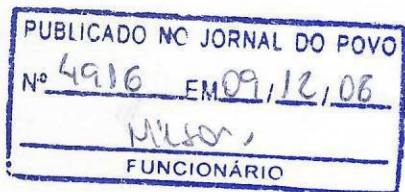 PUBLICADO NO JORNAL DO POVO
Nº 4916 EM 09/12/06
FUNCIONÁRIO